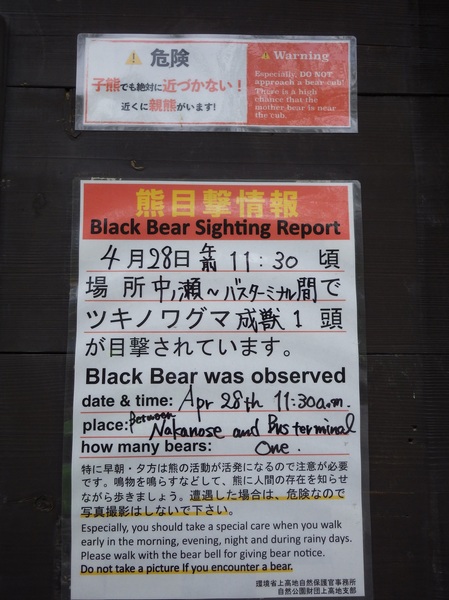 危険
子熊でも絶対に近づかない！
近くに親熊がいます!
Warning
Especially, DO NOT
approach a bear cub!
There is a high
chance that the
mother bear is near
the cub.
熊目撃情報
Black Bear Sighting Report
4月28日 午前 11:30 頃
場 所 中ノ瀬～バスターミナル間で
ツキノワグマ 成獣 1 頭
が目撃されています。
Black Bear was observed
date & time: Apr 28th 11:30a.m.
place: Between Nakanose and Bus terminal
how many bears: One.
特に早朝・夕方は熊の活動が活発になるので注意が必要
です。鳴物を鳴らすなどして、熊に人間の存在を知らせ
ながら歩きましょう。遭遇した場合は、危険なので
写真撮影はしないで下さい。
Especially, you should take a special care when you walk
early in the morning, evening, night and during rainy days.
Please walk with the bear bell for giving bear notice.
Do not take a picture If you encounter a bear.
環境省上高地自然保護官事務所
自然公園財団上高地支部